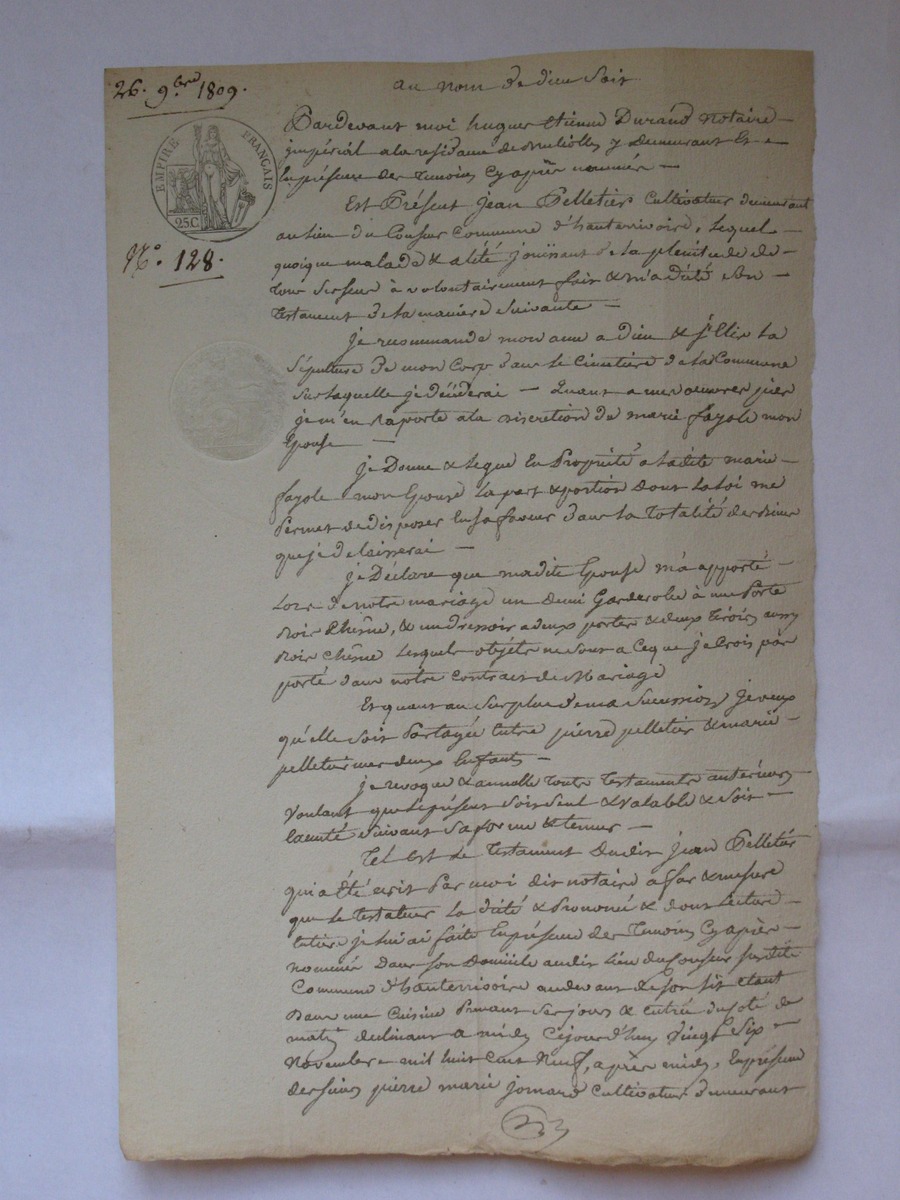 26. 9.bre 1809.
au nom de dieu soit
EMPIRE FRANÇAIS
25C
N.° 128.
Pardevant moi hugues Etienne Durand Notaire
impérial ala residance de y demeurant Et
En présence des Temoins Cyaprès nommés
Est Présent jean Pelletier Cultivateur demeurant
au lieu du Commune d'hauterivoire, Lequel
quoique malade & alité jouissant de la plenitude de
tous ses sens à volontairement fait & m'a dicté son
Testament de la maniere Suivante
je recommande mon ame a Dieu & j'Elis La
Sépulture de mon Corp dans le Cimetière de la Commune
sur laquelle je décéderai Quant a mes oeuvres pies
je m'en raporte ala discretion de marie fayole mon
Epouse
je Donne & legue En Propriété a ladite marie
fayole mon Epouse La part & portion dont La loi me
Permet de disposer En sa faveur dans la Totalité des biens
que je delaisserai
je Déclare que madite Epouse m'a apporté
Lors de notre mariage un demi Garderobe à une Porte
Bois Chêne, & un dressoir a deux portes & deux tiroirs aussi
Bois Chêne Lesquels objets ne sont a Ceque je Crois pas
porté dans notre Contract de Mariage
Et quant au surplus de ma Sucession je veux
qu'elle soit Partagée Entre pierre pelletier & marie
pelletier mes deux Enfants
je revoque & annulle toute Testaments antérieurs
voulant que le présent soit seul & valable & soit
Executé Suivant sa forme & teneur
Tel est le Testament dudit jean Pelletier
qui a Eté écrit Par moi dit notaire a fur & mesure
que le testateur La dicté & Prononcé & dont Lecture
Entière je lui ai faite En présence des Temoins Cyaprès
nommés Dans son Domicile audit Lieu du susdite
Commune d'hauterivoire au devant de son lit Etant
Dans une Cuisine Prenant ses jours & Entrée du coté de
matin declinant a midy Cejourd'huy Vingt Six
Novembre mil huit Cent Neuf, après midy, En présence
des sieurs pierre marie Cultivateur demeurant